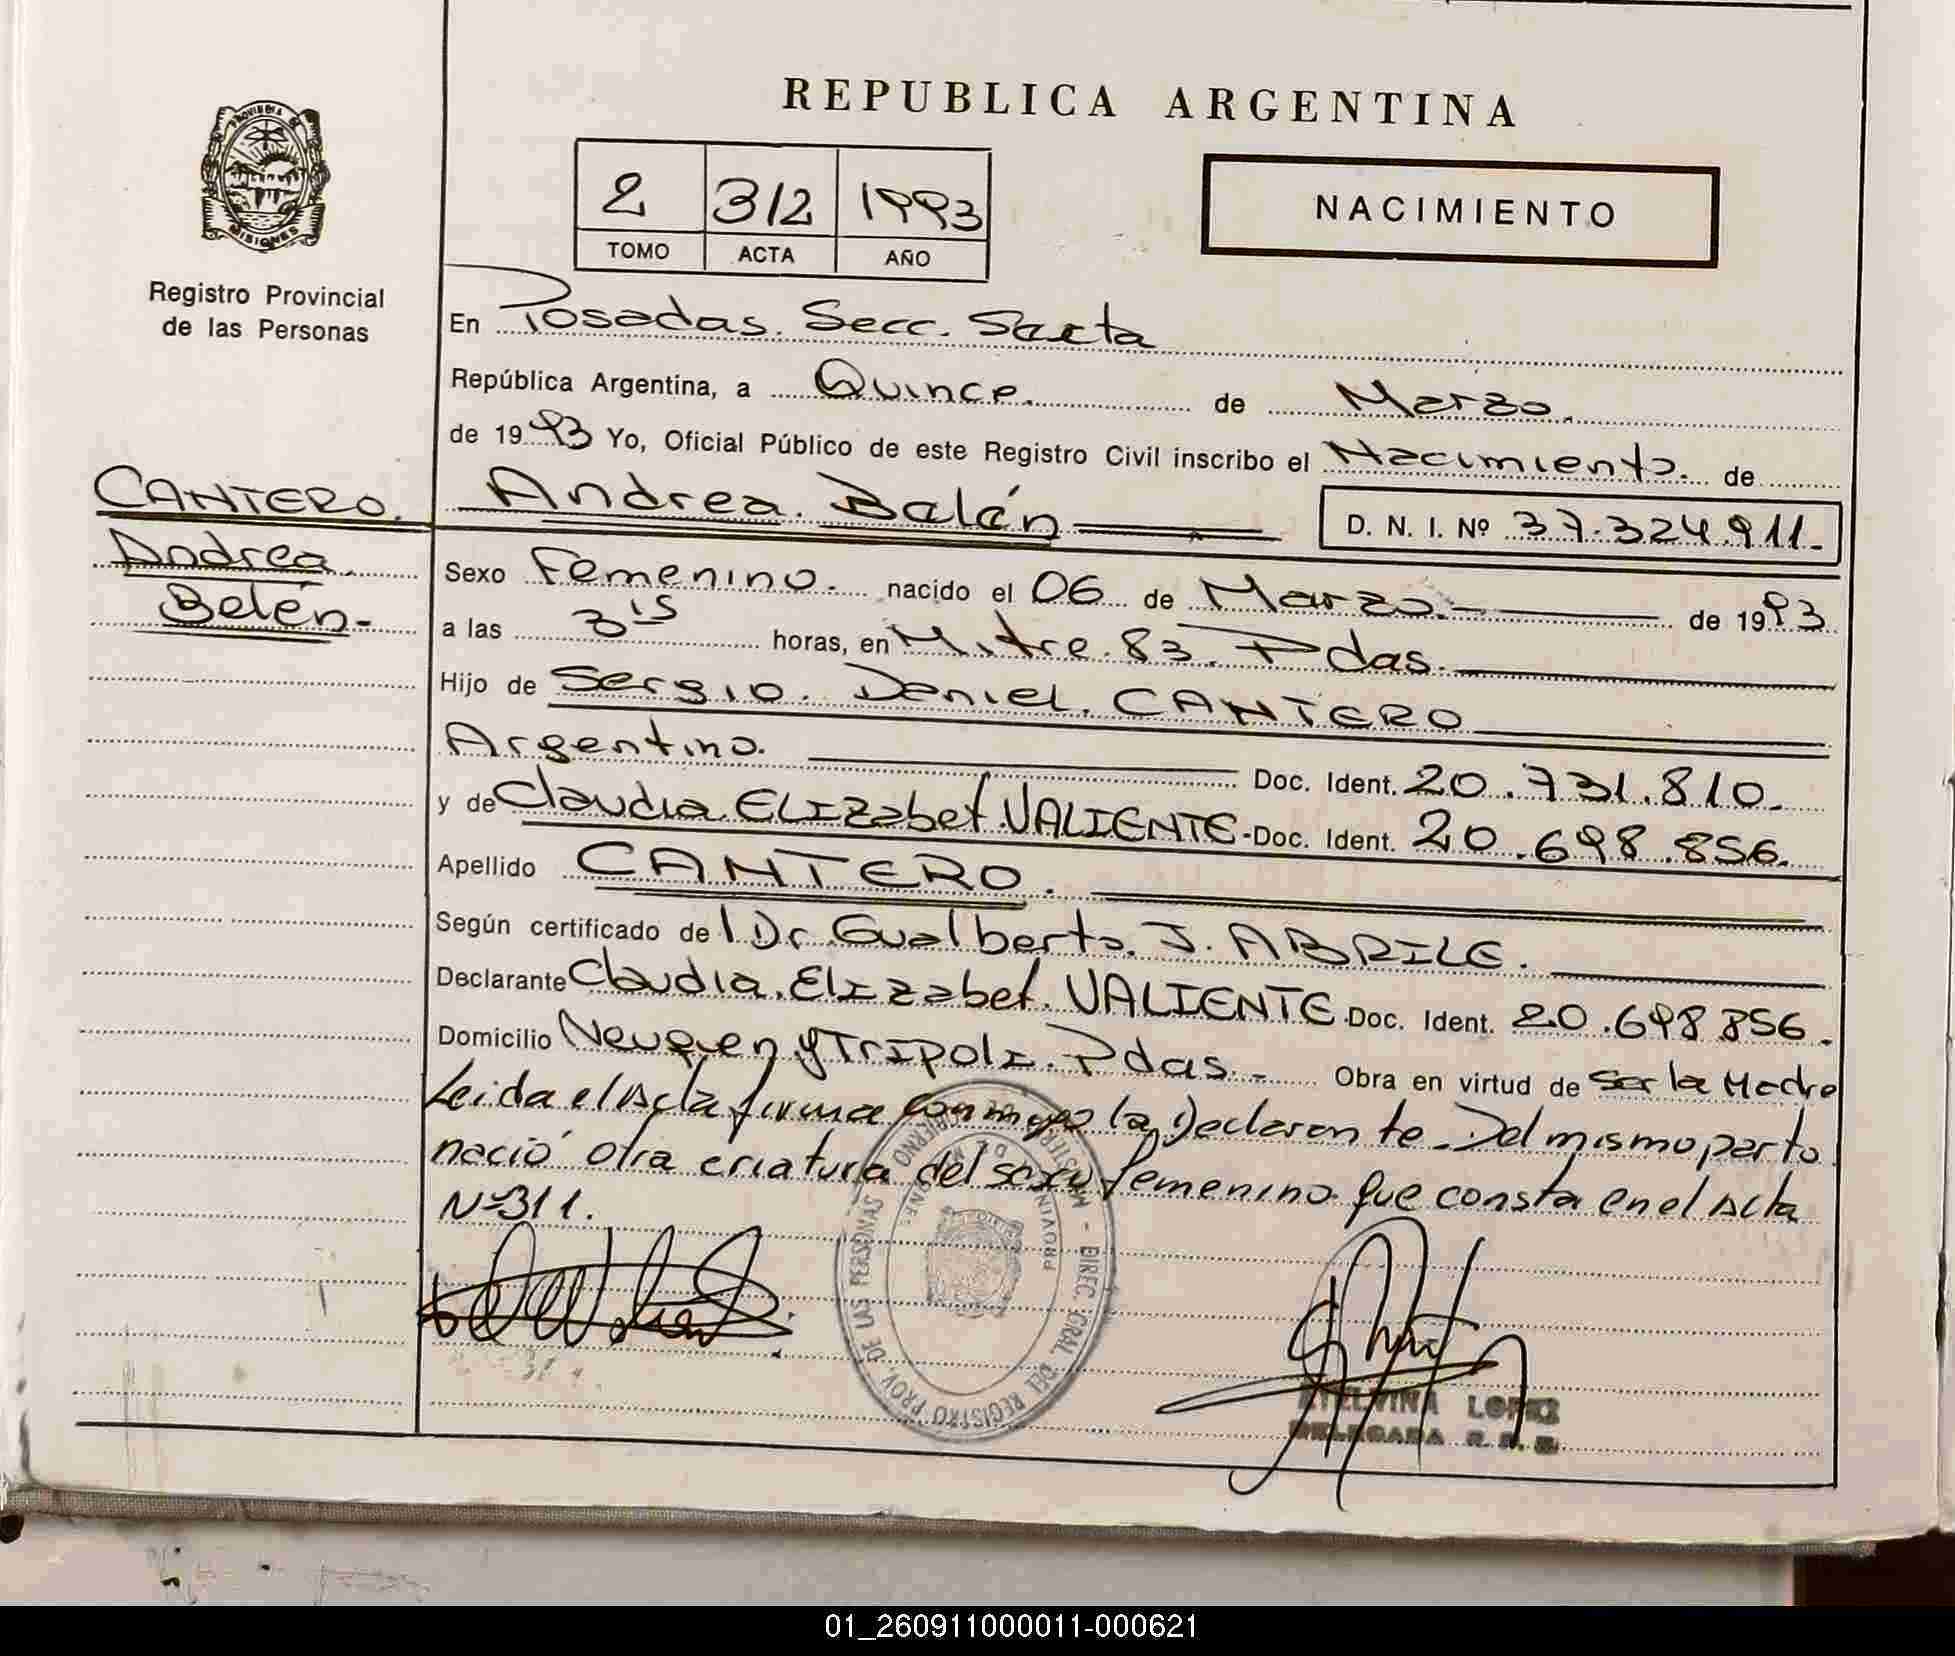 REPUBLICA ARGENTINA
PROVINCIA DE
MISIONES
Registro Provincial
de las Personas
2 312 1993
TOMO ACTA AÑO
NACIMIENTO
En Posadas. Secc. Sexta
República Argentina, a Quince. de Marzo.
de 1993 Yo, Oficial Público de este Registro Civil inscribo el Nacimiento. de
CANTERO.
Andrea.
Belén-
Andrea. Belén
D. N. I. Nº 37.324.911.-
Sexo Femenino. nacido el 06 de Marzo.- de 1993
a las 3 15 horas, en Mitre. 83. Pdas.
Hijo de Sergio. Daniel. CANTERO
Argentino. Doc. Ident. 20.731.810.
y de Claudia ELIZabet. VALIENTE- Doc. Ident. 20.698.856.
Apellido CANTERO.
Según certificado de l Dr. Gualberto. J. ABRILE.
Declarante Claudia. ELIzabet. VALIENTE Doc. Ident. 20.698.856.
Domicilio Neuquen y TrIpolI. Pdas.- Obra en virtud de Ser la Madre
Leida el Acta firma conmigo la Declarante. Del mismo parto
nació otra criatura del sexo femenino que consta en el Acta
Nº 311.
DIREC. GRAL. DEL REGISTRO PROV. DE LAS PERSONAS
ETELVINA LOPEZ
DELEGADA
01_260911000011-000621